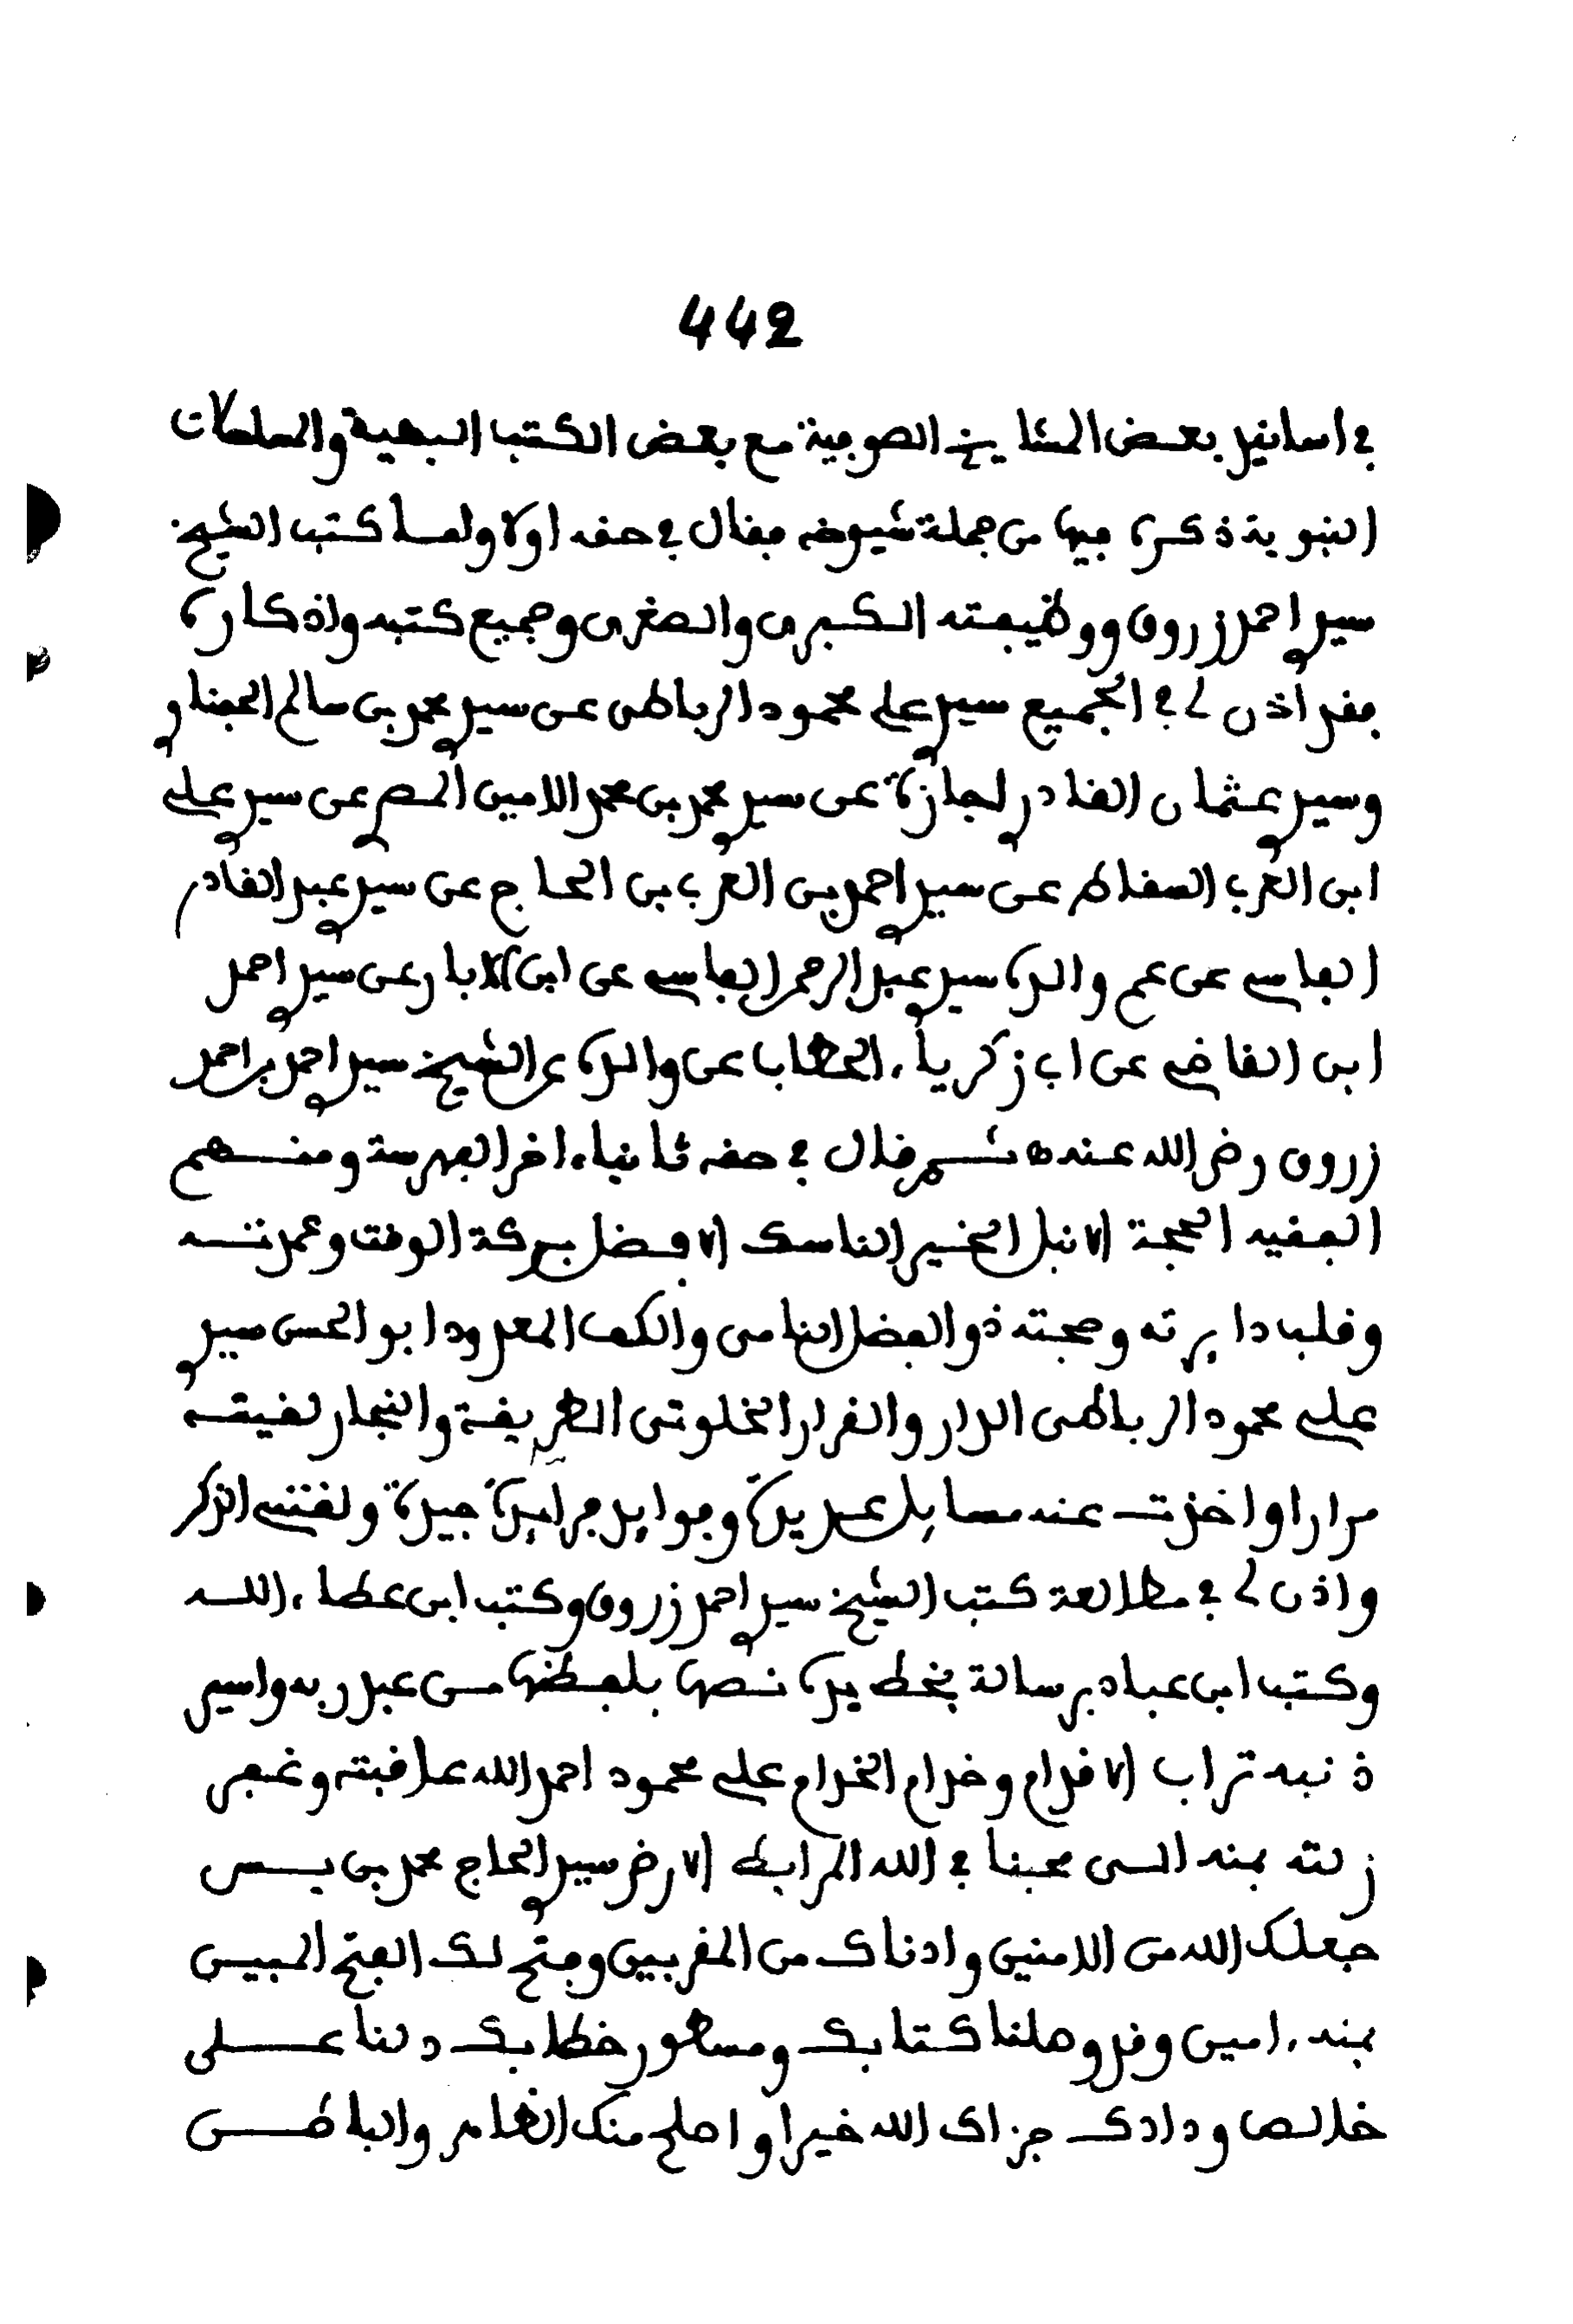 442
في اسانيد بعض المشايخ الصوفية مع بعض الكتب البهية والصلوات
النبوية ذكره فيها من جملة شيوخه فقال في حقه اولا ولما كتب الشيخ
سيدي احمد زروق ووظيفته الكبرى والصغرى وجميع كتبه واذكاره
فقد اذن لي في الجميع سيدي علي محمود الرباطي عن سيدي محمد بن سالم الحفناوي
وسيدي عثمان القادري اجازة عن سيدي محمد بن محمد الامين عن سيدي علي
ابن العربي السقاط عن سيدي احمد بن العربي بن الحاج عن سيدي عبد القادر
الفاسي عن عم والده سيدي عبد الرحمن الفاسي عن ابن الابار عن سيدي احمد
ابن القاضي عن ابي زكرياء الحطاب عن والده عن الشيخ سيدي احمد بن احمد
زروق رضي الله عنه ه ثم قال في حقه ثانيا ءاخر الفهرسة ومنهم
الفقيه الحجة الانبل الخير الناسك الافضل بركة الوقت وعمدته
وقلب دايرته وصحبته ذو الفضل النامي والكهف المعدود ابو الحسن سيدي
علي محمود الرباطي الدار والقرار الخلوتي الطريقة والنجار لقيته
مرارا واخذت عنه مسايل عديدة وفوايد فرايدة جيدة ولقنني الذكر
واذن لي في مطالعة كتب الشيخ سيدي احمد زروق وكتب ابن عطاء الله
وكتب ابن عباد برسالة بخط يده نصها بلفظها من عبد ربه واسير
ذنبه تراب الاقدام وخدام الخدام علي محمود احمد الله عاقبته وغفر
زلته بمنه الى محبنا في الله المرابط الارضى سيدي الحاج محمد بن يس
جعلك الله من الامنين وادناك من المقربين وفتح لك الفتح المبين
بمنه ءامين وقد وصلنا كتابك ومسطور خطابك دلنا على
خالص ودادك جزاك الله خيرا واصلح منك الظاهر والباطن